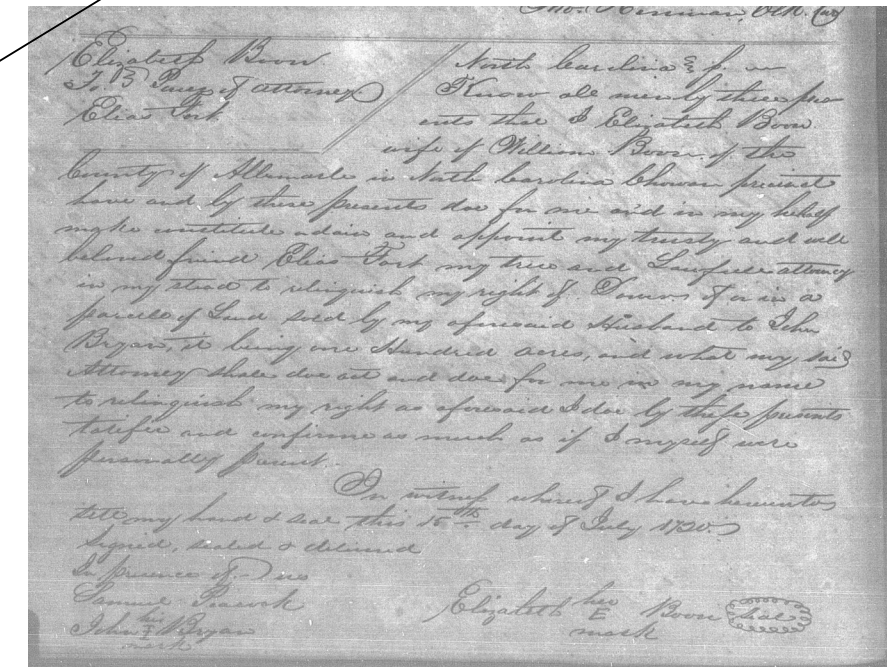 Thos. Henman, Clk.
Elizabeth Boon
To } Power of attorney
Elias Fort
North Carolina
Know all men by these pre
sents that I Elizabeth Boon
wife of William Boon of the
County of Albemarle in North Carolina Chowan precinct
have and by these presents doe for me and in my behalf
make constitute and appoint my trusty and well
beloved friend Elias Fort my true and Lawfull attorney
in my stead to relinquish my right of Dower of or in a
parcell of Land sold by my aforesaid Husband to John
Bryan, it being one Hundred acres, and what my said
Attorney shall doe act and doe for me in my name
to relinquish my right as aforesaid I doe by these presents
ratifie and confirme as much as if I myself were
personally present.
In witness whereof I have hereunto
sett my hand & seal this 15th day of July 1720.
Signed, sealed & delivered
In presence of us
Samuel Peacock
John his mark Bryan
Elizabeth her E mark Boon Seal